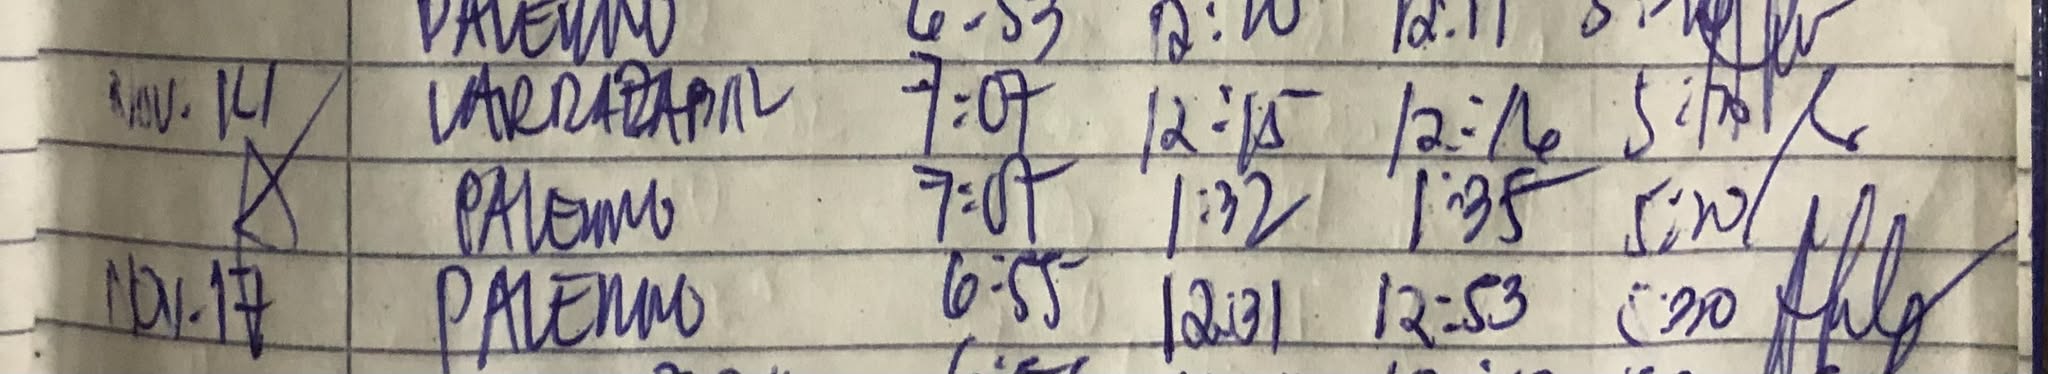 PALERMO 6-53 12:10 12:11
Nov. 14 LARRAZABAL 7:07 12:15 12:16
PALERMO 7:07 1:32 1:35 5:20
Nov. 17 PALERMO 6:55 12:31 12:53 5:30